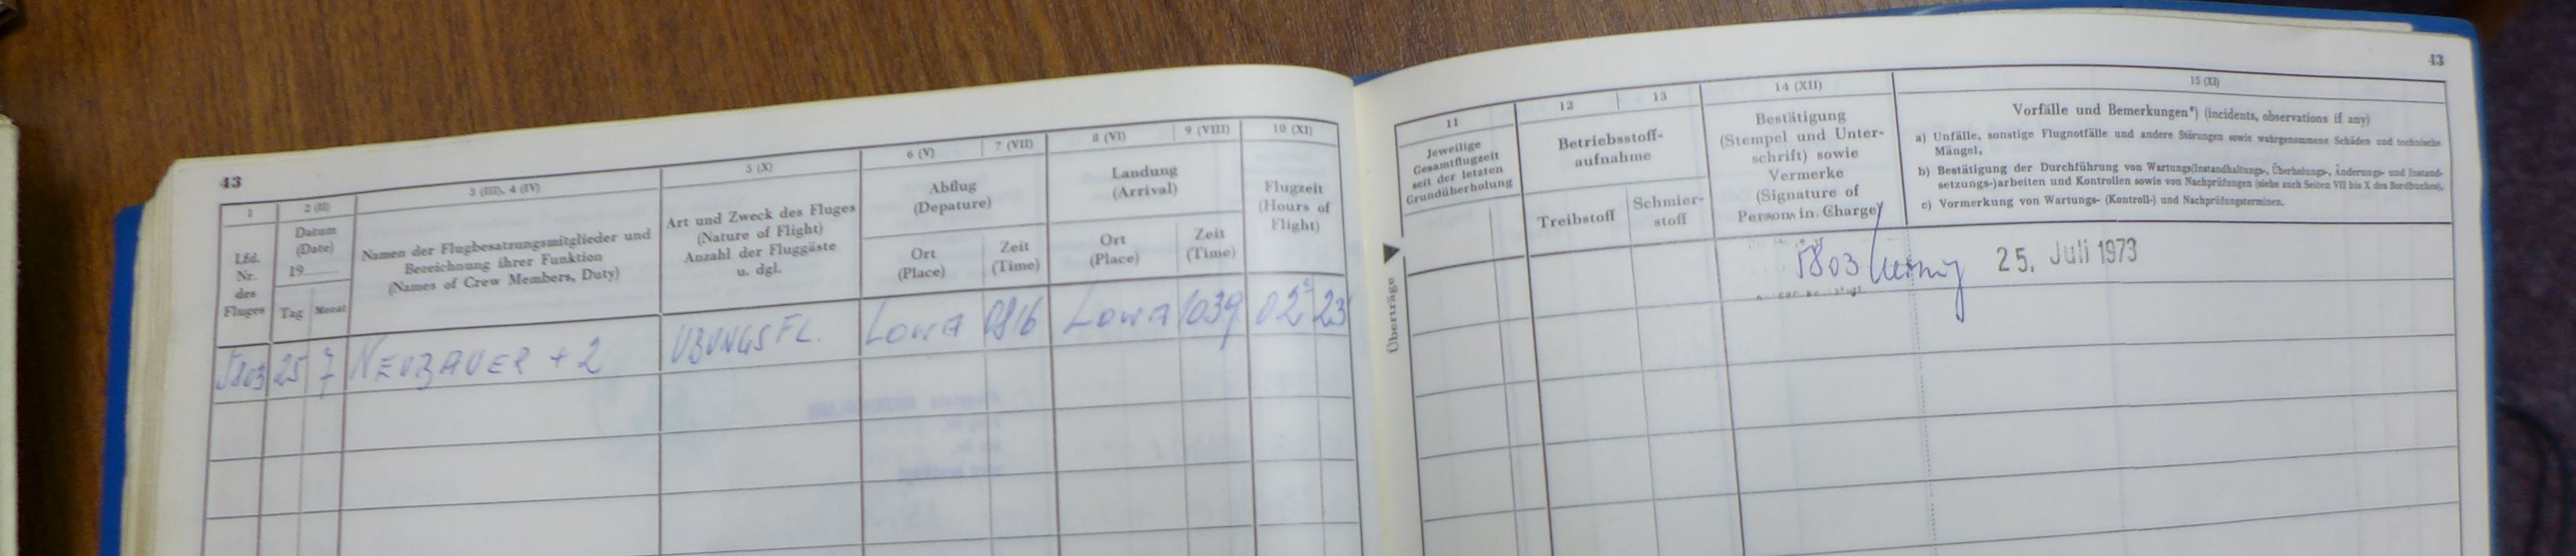 43
1
2 (II)
3 (III), 4 (IV)
5 (X)
6 (V)
7 (VII)
8 (VI)
9 (VIII)
10 (XI)
Lfd.
Nr.
des
Fluges
Datum
(Date)
19
Tag
Monat
Namen der Flugbesatzungsmitglieder und
Bezeichnung ihrer Funktion
(Names of Crew Members, Duty)
Art und Zweck des Fluges
(Nature of Flight)
Anzahl der Fluggäste
u. dgl.
Abflug
(Depature)
Ort
(Place)
Zeit
(Time)
Landung
(Arrival)
Ort
(Place)
Zeit
(Time)
Flugzeit
(Hours of
Flight)
5803 25 7 NEUBAUER + 2 ÜBUNGSFL. LOWA 0816 LOWA 1039 02 23
43
11
12
13
14 (XII)
15 (XI)
Jeweilige
Gesamtflugzeit
seit der letzten
Grundüberholung
Betriebsstoff-
aufnahme
Treibstoff
Schmier-
stoff
Bestätigung
(Stempel und Unter-
schrift) sowie
Vermerke
(Signature of
Person in Charge)
Vorfälle und Bemerkungen*) (incidents, observations if any)
a) Unfälle, sonstige Flugnotfälle und andere Störungen sowie wahrgenommene Schäden und technische
Mängel,
b) Bestätigung der Durchführung von Wartungs(Instandhaltungs-, Überholungs-, Änderungs- und Instand-
setzungs-)arbeiten und Kontrollen sowie von Nachprüfungen (siehe auch Seiten VII bis X des Bordbuches),
c) Vormerkung von Wartungs- (Kontroll-) und Nachprüfungsterminen.
Überträge
5803
25. Juli 1973